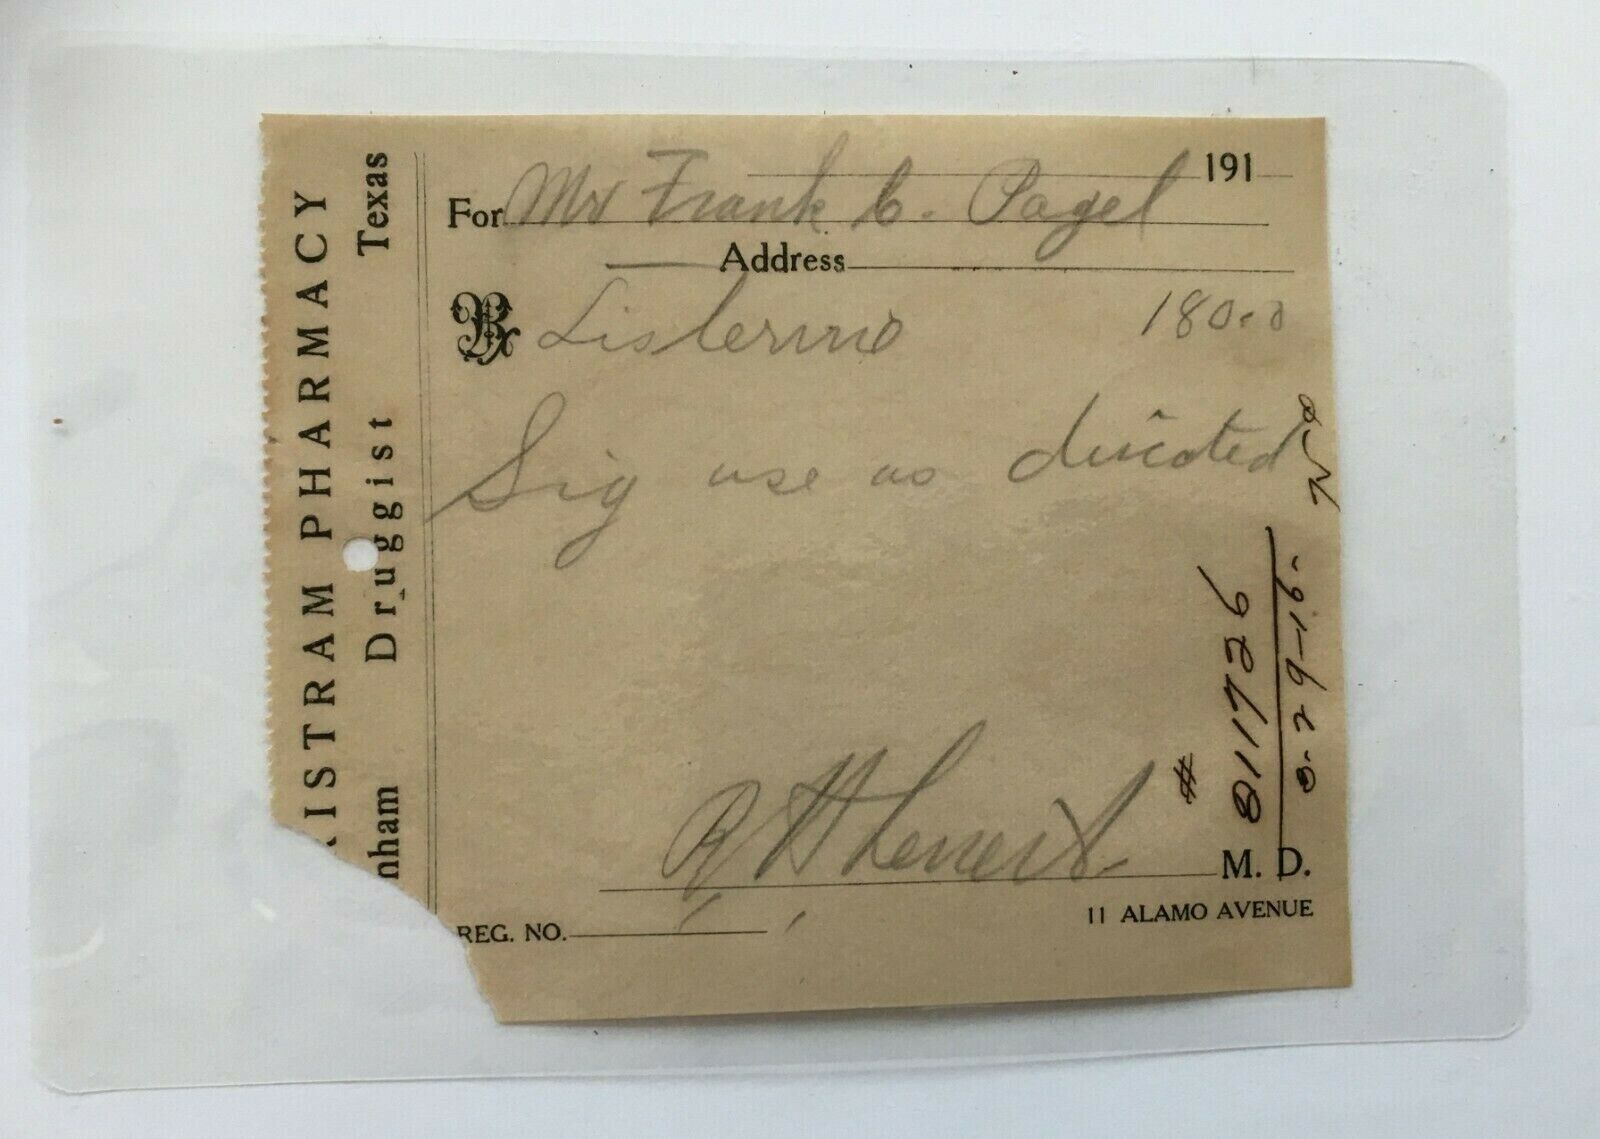 RISTRAM PHARMACY
nham Druggist Texas
191
For Mr Frank C. Pagel
Address
Rx Listerine 180.0
Sig use as directed
M. D.
REG. NO.
11 ALAMO AVENUE
# 811726
8-29-16-